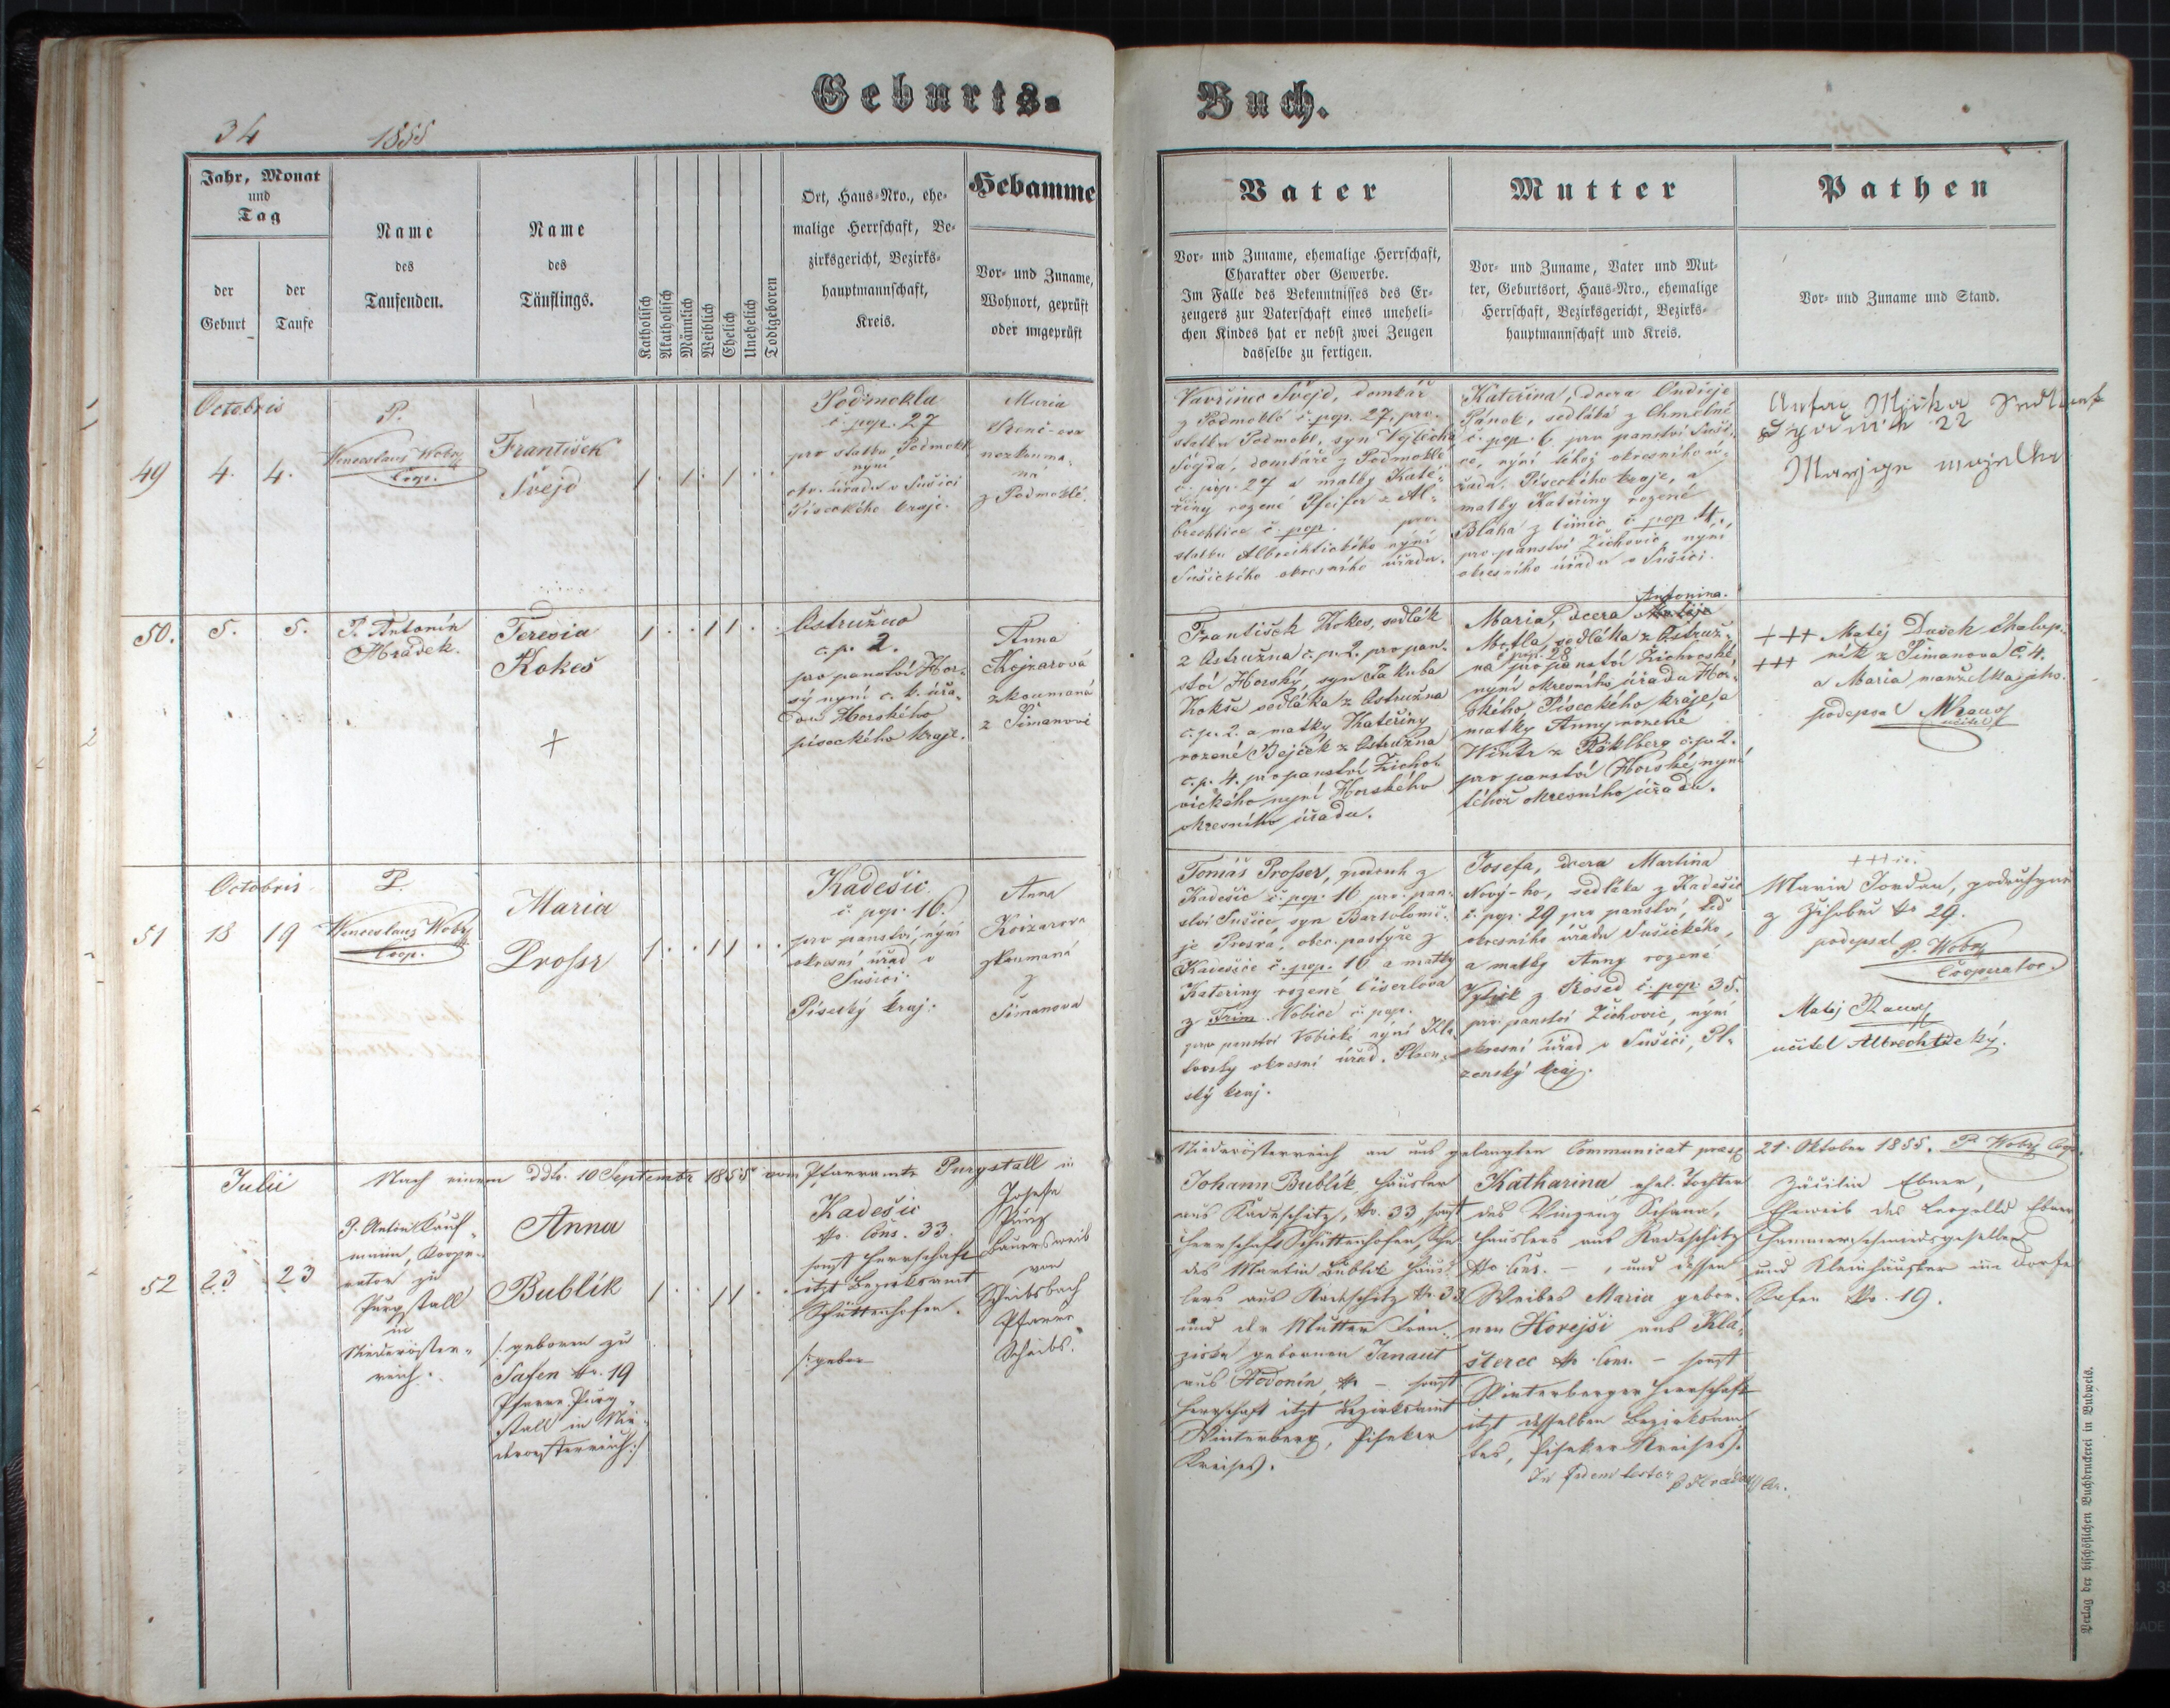 Geburts-
Buch.
34
1855
Jahr, Monat
und
Tag
der
Geburt
der
Taufe
Name
des
Taufenden.
Name
des
Täuflings.
Katholisch
Akatholisch
Männlich
Weiblich
Ehelich
Unehelich
Todtgeboren
Ort, Haus-Nro., ehe-
malige Herrschaft, Be-
zirksgericht, Bezirks-
hauptmannschaft,
Kreis.
Hebamme
Vor- und Zuname,
Wohnort, geprüft
oder ungeprüft
Vater
Vor- und Zuname, ehemalige Herrschaft,
Charakter oder Gewerbe.
Im Falle des Bekenntnisses des Er-
zeugers zur Vaterschaft eines uneheli-
chen Kindes hat er nebst zwei Zeugen
dasselbe zu fertigen.
Mutter
Vor- und Zuname, Vater und Mut-
ter, Geburtsort, Haus-Nro., ehemalige
Herrschaft, Bezirksgericht, Bezirks-
hauptmannschaft und Kreis.
Pathen
Vor- und Zuname und Stand.
Octobris
49
4.
4.
P.
Wenceslaus Wobr
Coop.
František
Švejd
Podmokla
č. pop. 27
pro statku Podmokl
nyní
okr. úřadu v Sušici
Píseckého kraje.
Maria
nezkouma-
ná
z Podmoklé.
Vavřinec Švejd, domkář
z Podmoklé č. pop. 27, pro.
statku Podmokl, syn Vojtěcha
Švejda, domkáře z Podmoklé
č. pop. 27 a matky Kate-
řiny rozené Pfeifer z Al-
brechtice č. pop. pro.
statku Albrechtického nyní
Sušického okresního úřadu.
Kateřina, dcera Ondřeje
Pánek, sedláka z Chmelné
č. pop. 6 pro panství Suši-
ce, nyní téhož okresního ú-
řadu Píseckého kraje, a
matky Kateřiny rozené
Bláha z č. pop. 4,
pro panství Žichovic, nyní
okresního úřadu v Sušici.
22
50.
5.
5.
P. Antonín
Hrádek.
Teresia
Kokeš
Ostružno
č. p. 2.
pro panství Hor-
ský nyní c. k. úřa-
du Horského
píseckého kraje.
Anna
Kojzarová
zkoumaná
z Šimanova
František Kokes, sedlák
z Ostružna č. p. 2. pro pan-
ství Horský, syn Jakuba
Kokše sedláka z Ostružna
č. p. 2. a matky Kateřiny
rozené Bejček z Ostružna
č. p. 4. pro panství Žicho-
vického nyní Horského
okresního úřadu.
Antonína.
Maria, dcera Matěje
Motla, sedláka z Ostruž-
č. pop. 28
na pro panství Žichovské,
nyní okresního úřadu Hor-
ského Píseckého kraje, a
matky Anny rozené
Wintr z Röhlberg č. p. 2.
pro panství Horské, nyní
téhož okresního úřadu.
+++ Matěj Dušek Chalup-
+++ ník z Šimanova č. 4.
a Maria manželka jeho.
podepsal MRaus
učitel
Octobris
51
18
19
P.
Wenceslaus Wobr
Coop.
Maria
Prossr
Kadešic
č. pop. 16.
pro panství, nyní
okresní úřad v
Sušici
Písecký kraj.
Anna
Koizarova
zkoumaná
z
Šimanova
Tomáš Prosser, z
Kadešic č. pop. 16 pro pan-
ství Sušice, syn Bartoloměj-
je Prosra, obec. pastýře z
Kadešic č. pop. 16 a matky
Kateřiny rozené Ciserlova
z č. pop.
pro panství nyní Kla-
tovsky okresní úřad. Plzen-
ský kraj.
Josefa, dcera Martina
Nový-ho, sedláka z Kadešic
č. pop. 29 pro panství,
okresního úřadu Sušického,
a matky Anny rozené
z Rosed č. pop. 35.
pro panství Žichovic, nyní
okresní úřad v Sušici, Pl-
zenský kraj.
Maria Jordan, podruhyně
z Žihobec No 29.
podepsal P. Wobr
Cooperator.
Matěj Raus
učitel Albrechtický.
Julii
Nach einem ddto. 10 Septembr 1855 vom Pfarramte Purgstall in
Niederösterreich an uns gelangten Communicat praes
21. Oktober 1855. P. Wobr Coop.
52
23
23
P. Anton Kauf-
mann, Koope-
rator zu
Purgstall
in
Niederöster-
reich.
Anna
Bublik
/: geboren zu
Safen No. 19
Pfarre Purg-
stall in Nie-
derösterreich :/
Kadešic
No. Cons. 33.
sonst Herrschaft
itzt Bezirksamt
Schüttenhofen.
/: gebor
Josefa
Bauersweib
von
Scheibsbach
Pfarre
Scheibs.
Johann Bublik, Häusler
aus Kadeschitz, No. 33, sonst
Herrschaft Schüttenhofen, Sohn
des Martin Bublik Häus-
lers aus Kadeschitz No. 33
und der Mutter Fran-
ziska gebornen Janaut
aus Hodonín, No – sonst
Herrschaft itzt Bezirksamt
Winterberg, Piseker
Kreises.
Katharina ehel. Tochter
des Vinzenz
Häuslers aus Kadeschitz
No Cons. – , und dessen
Weibes Maria gebor-
nen Hořejsi aus Klá-
šterce No Cons. – sonst
Winterberger Herrschaft
itzt desselben Bezirksam-
tes, Piseker Kreises.
Zäcilia Ebner,
Eheweib des Leopolds Ebner
Hammerschmiedgesellen
und Kleinhäusler im Dorfe
Safen No. 19.
Verlag der bischöflichen Buchdruckerei in Budweis.